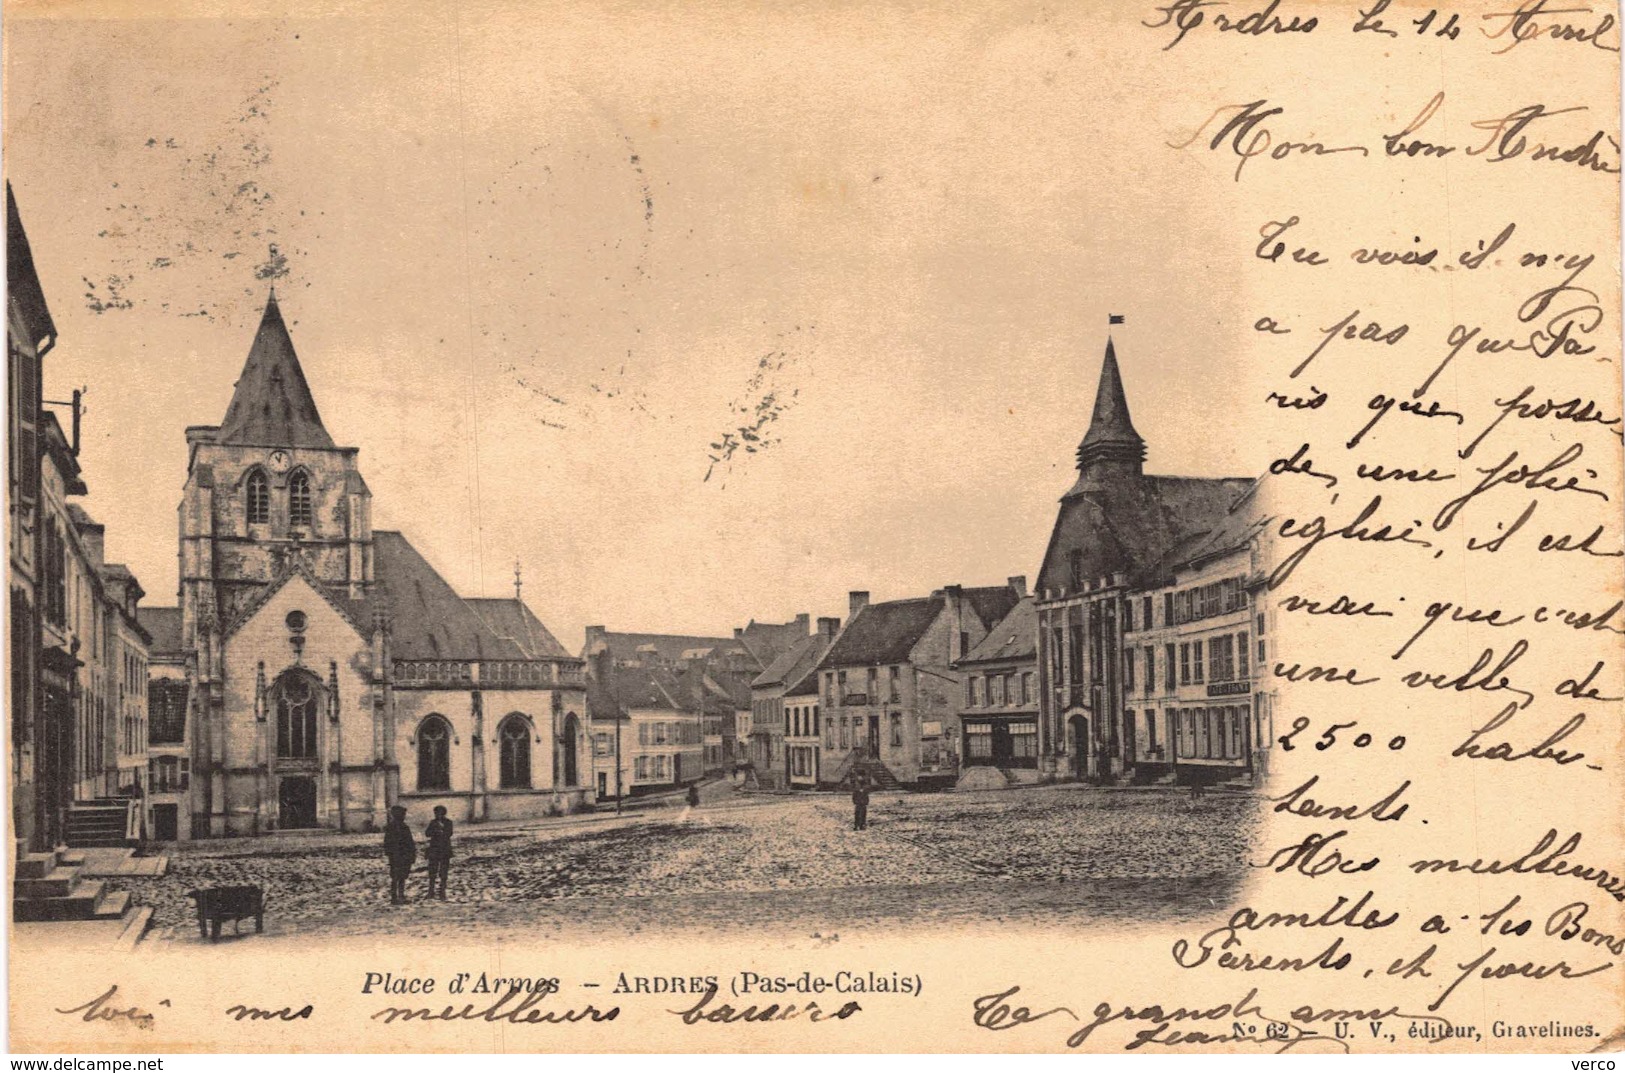 Ardres le 14 Avril
Mon bon André
Tu vois il n'y
a pas que Pa-
ris que possè-
de une jolie
église, il est
vrai que c'est
une ville de
2500 habi-
tants.
Mes meilleures
amitiés à tes Bons
Parents, et pour
toi mes meilleurs baisers
Ta grande amie
Place d'Armes – ARDRES (Pas-de-Calais)
No 62 – U. V., éditeur, Gravelines.
verco